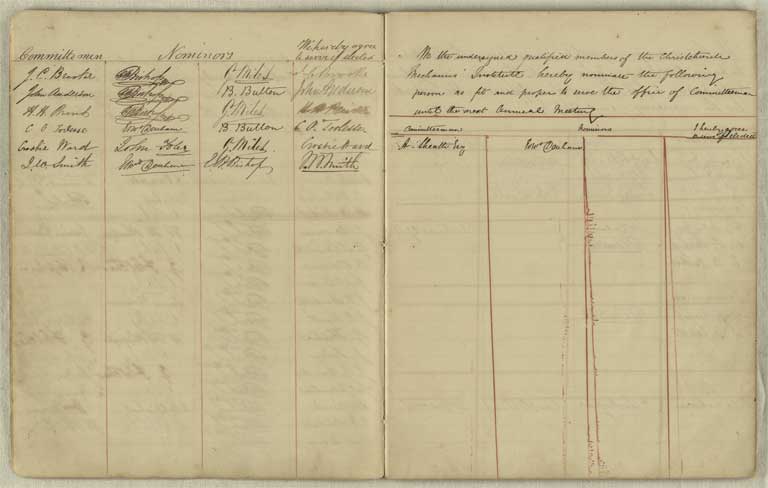 Committemen Nominors We hereby agree
to serve if elected
J. C. Brooke Bishop G Miles J. C. Brooke
John Anderson Bishop B. Button John Anderson
G Miles
C O Torlesse Wm Denham B. Button C. O. Torlesse
Crosbie Ward John Fler G Miles Crosbie Ward
J. W. Smith Wm Denham E B Bishop J. W. Smith
We the undersigned qualified members of the Christchurch
Mechanics Institute hereby nominate the following
person as fit and proper to serve the office of Committeeman
until the next Annual Meeting
Committeeman Nominors I hereby agree
to serve if elected
A. Sheath Esq Wm Denham